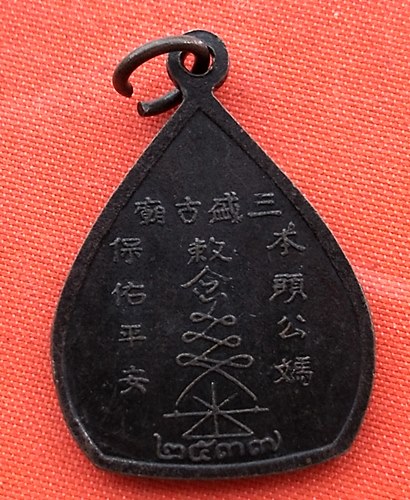 三盛古廟
本頭公媽
敕令
保佑平安
๒๕๓๗